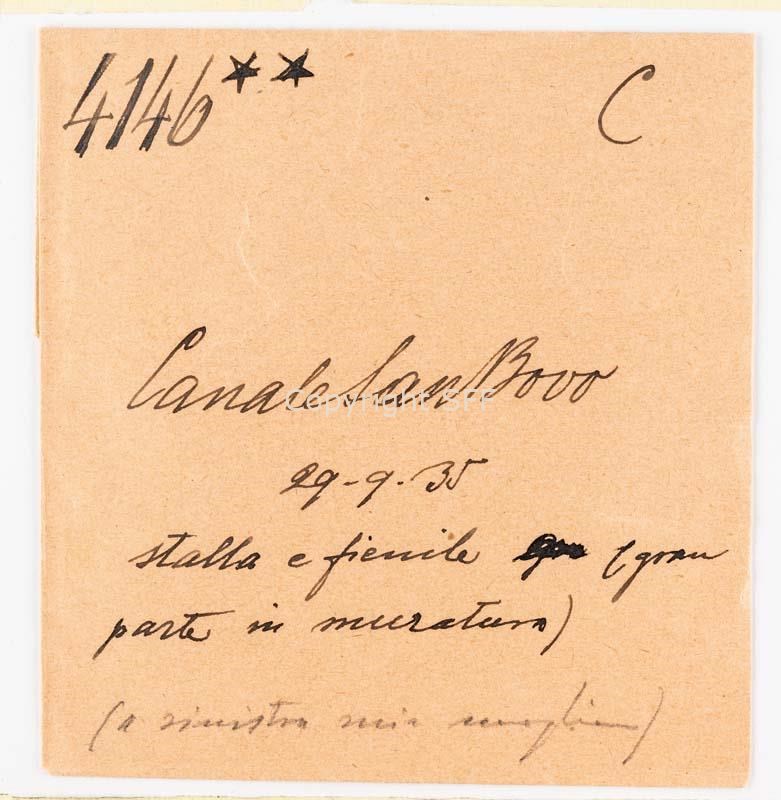 4146** C
Canale San Bovo
Copyright SFF
29-9-35
stalla e fienile (gran
parte in muratura)
(a sinistra mia moglie)